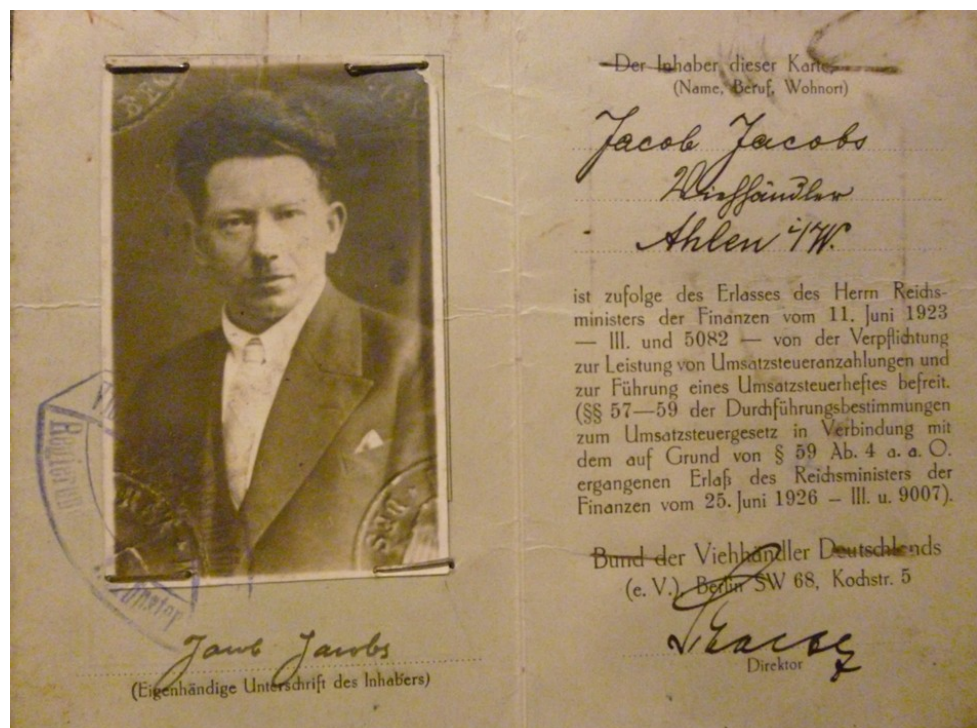 Jacob Jacobs
(Eigenhändige Unterschrift des Inhabers)
Der Inhaber dieser Karte
(Name, Beruf, Wohnort)
Jacob Jacobs
Viehhändler
Ahlen i/W.
ist zufolge des Erlasses des Herrn Reichs-
ministers der Finanzen vom 11. Juni 1923
— III. und 5082 — von der Verpflichtung
zur Leistung von Umsatzsteueranzahlungen und
zur Führung eines Umsatzsteuerheftes befreit.
(§§ 57—59 der Durchführungsbestimmungen
zum Umsatzsteuergesetz in Verbindung mit
dem auf Grund von § 59 Ab. 4 a. a. O.
ergangenen Erlaß des Reichsministers der
Finanzen vom 25. Juni 1926 – III. u. 9007).
Bund der Viehhändler Deutschlands
(e. V.), Berlin SW 68, Kochstr. 5
Direktor